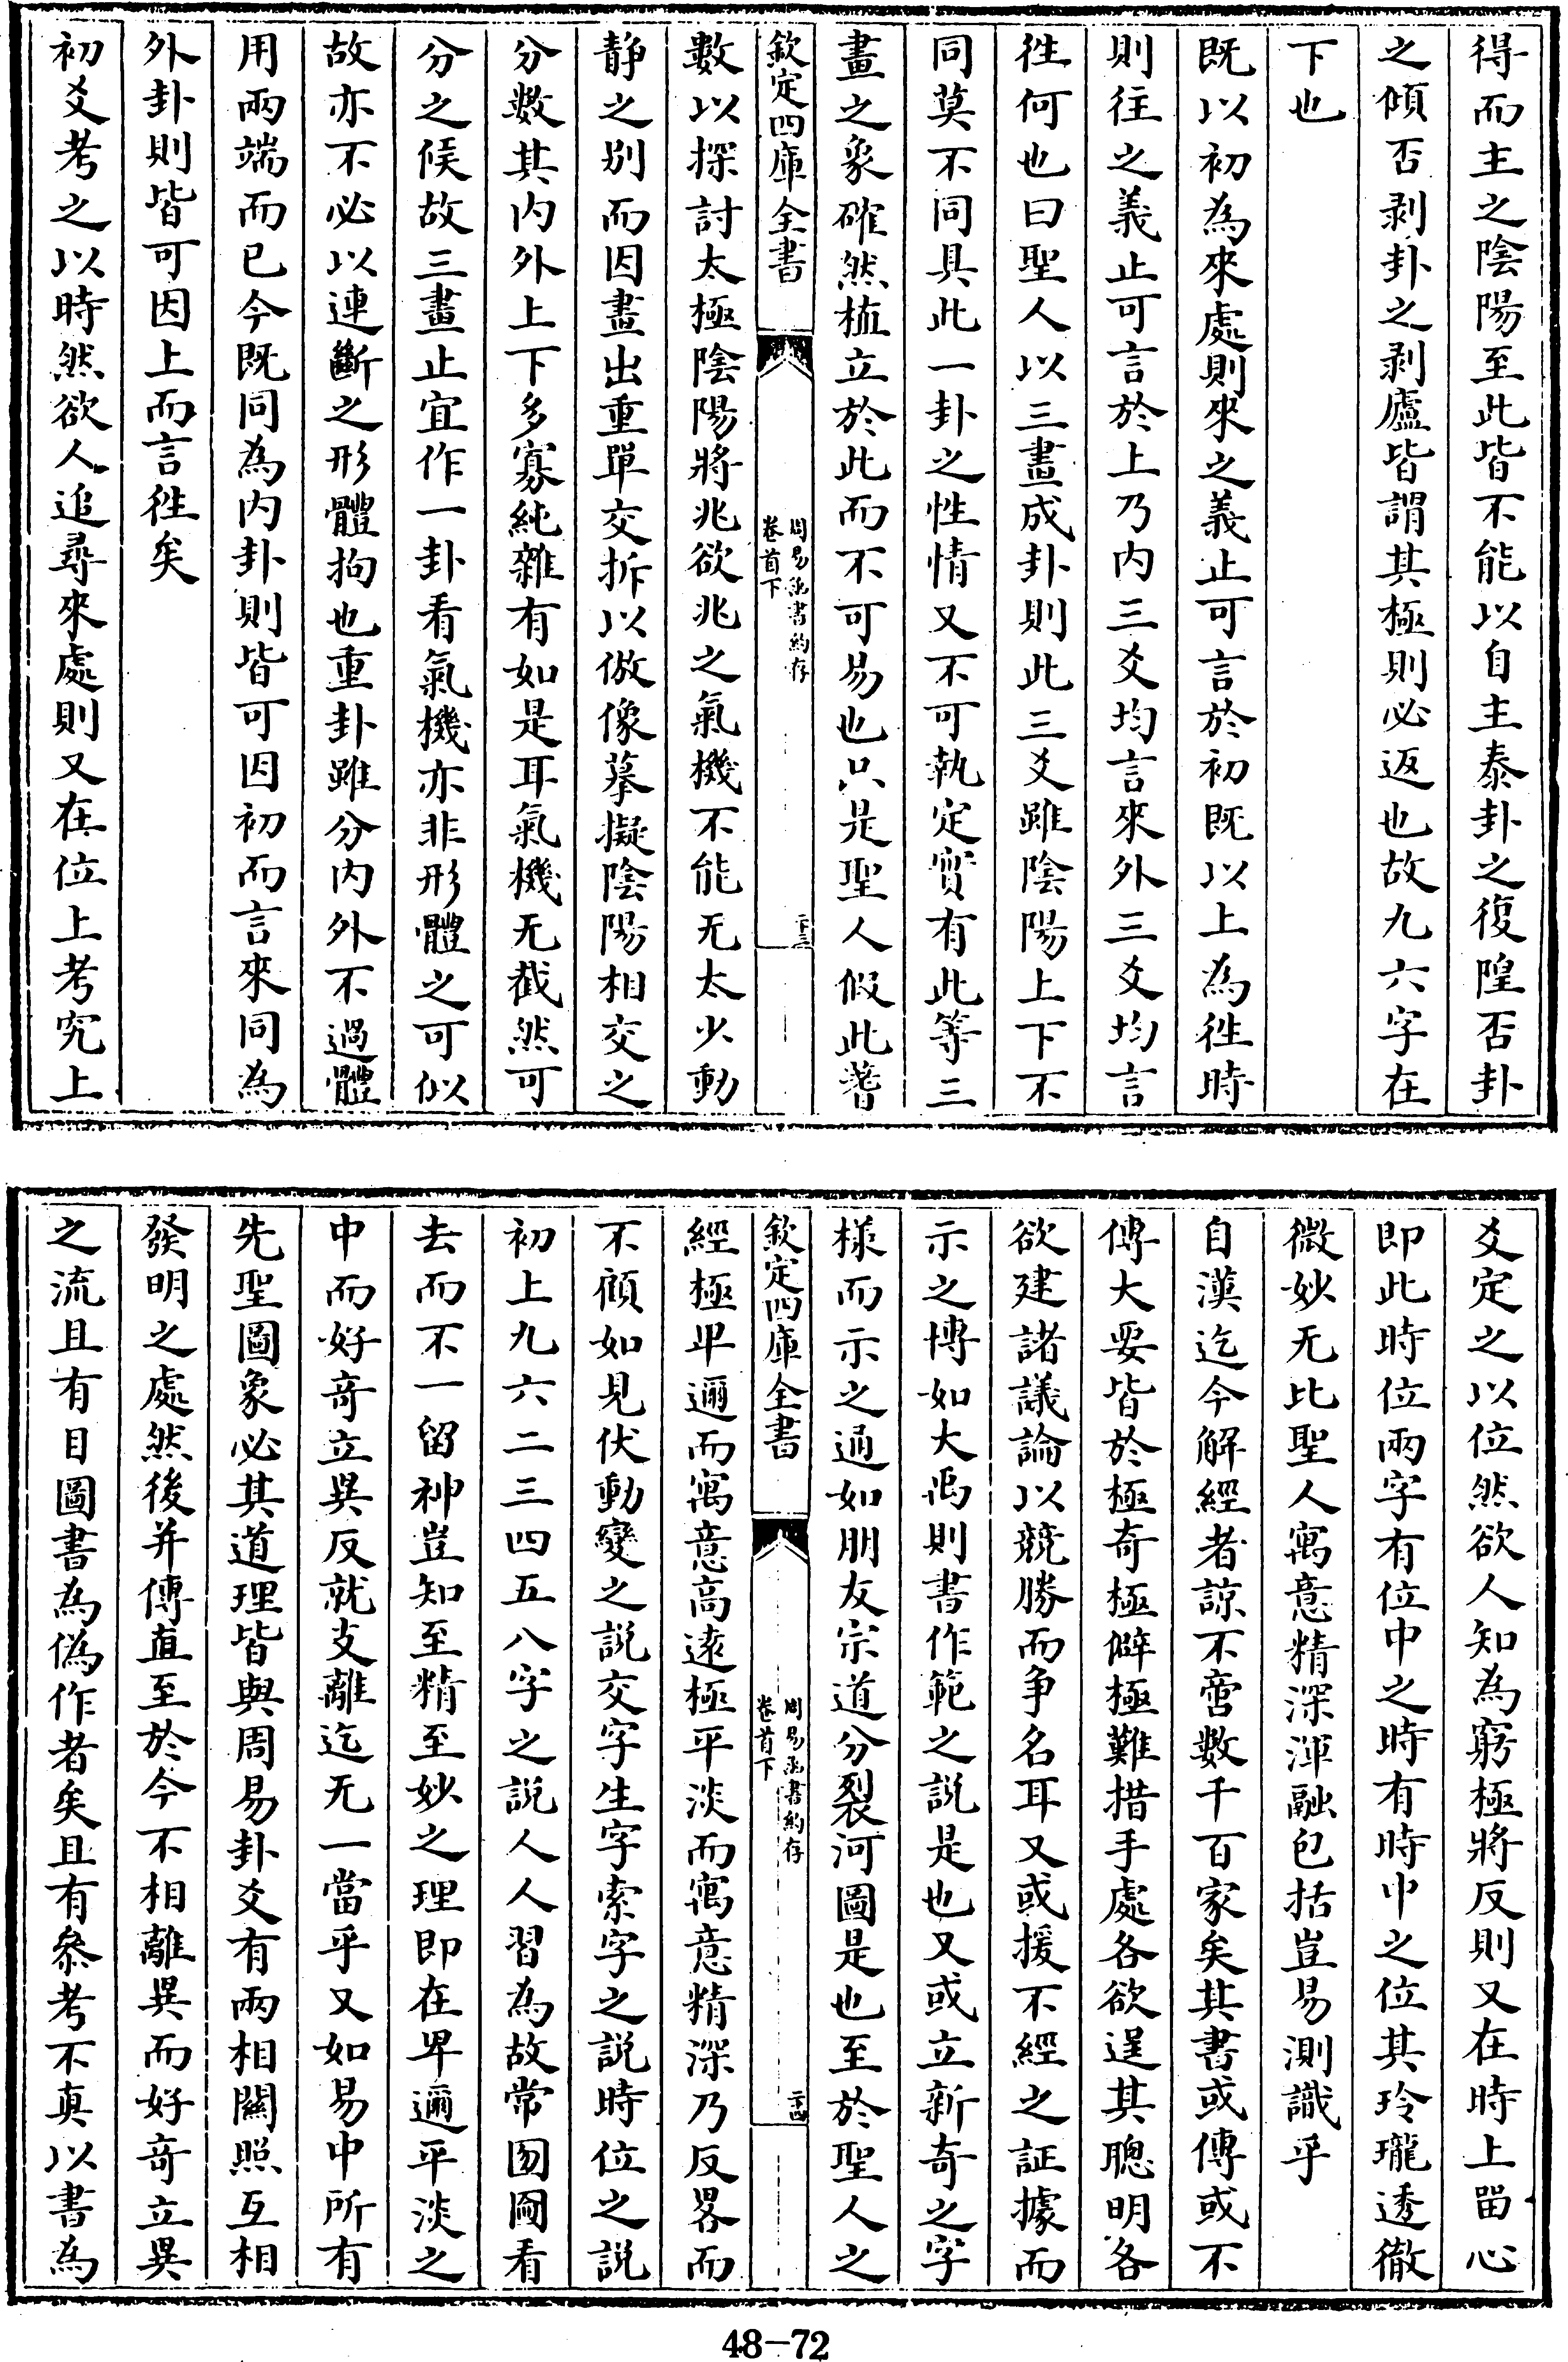 得而主之陰陽至此皆不能以自主泰卦之復隍否卦
之傾否剥卦之剥廬皆謂其極則必返也故九六字在
下也
既以初為來處則來之義止可言於初既以上為徃時
則往之義止可言於上乃内三爻均言來外三爻均言
徃何也曰聖人以三畫成卦則此三爻雖陰陽上下不
同莫不同具此一卦之性情又不可執定實有此等三
畫之象確然植立於此而不可易也只是聖人假此蓍
欽定四庫全書
周易函書約存
卷首下
二十三
數以探討太極陰陽將兆欲兆之氣機不能无太少動
靜之别而因畫出重單交拆以倣像摹擬陰陽相交之
分數其内外上下多寡純雜有如是耳氣機无截然可
分之候故三畫止宜作一卦看氣機亦非形體之可似
故亦不必以連斷之形體拘也重卦雖分内外不過體
用兩端而已今既同為内卦則皆可因初而言來同為
外卦則皆可因上而言徃矣
初爻考之以時然欲人追尋來處則又在位上考究上
爻定之以位然欲人知為窮極將反則又在時上留心
即此時位兩字有位中之時有時中之位其玲瓏透徹
微妙无比聖人寓意精深渾融包括豈易測識乎
自漢迄今解經者諒不啻數千百家矣其書或傳或不
傳大要皆於極奇極僻極難措手處各欲逞其聰明各
欲建諸議論以競勝而爭名耳又或援不經之証據而
示之博如大禹則書作範之説是也又或立新奇之字
様而示之通如朋友宗道分裂河圖是也至於聖人之
欽定四庫全書
周易函書約存
卷首下
二十四
經極卑邇而寓意高遠極平淡而寓意精深乃反畧而
不顧如見伏動變之説交字生字索字之説時位之説
初上九六二三四五八字之説人人習為故常囫圇看
去而不一留神豈知至精至妙之理即在卑邇平淡之
中而好竒立異反就支離迄无一當乎又如易中所有
先聖圖象必其道理皆與周易卦爻有兩相關照互相
發明之處然後并傳直至於今不相離異而好竒立異
之流且有目圖書為偽作者矣且有叅考不真以書為
48-72